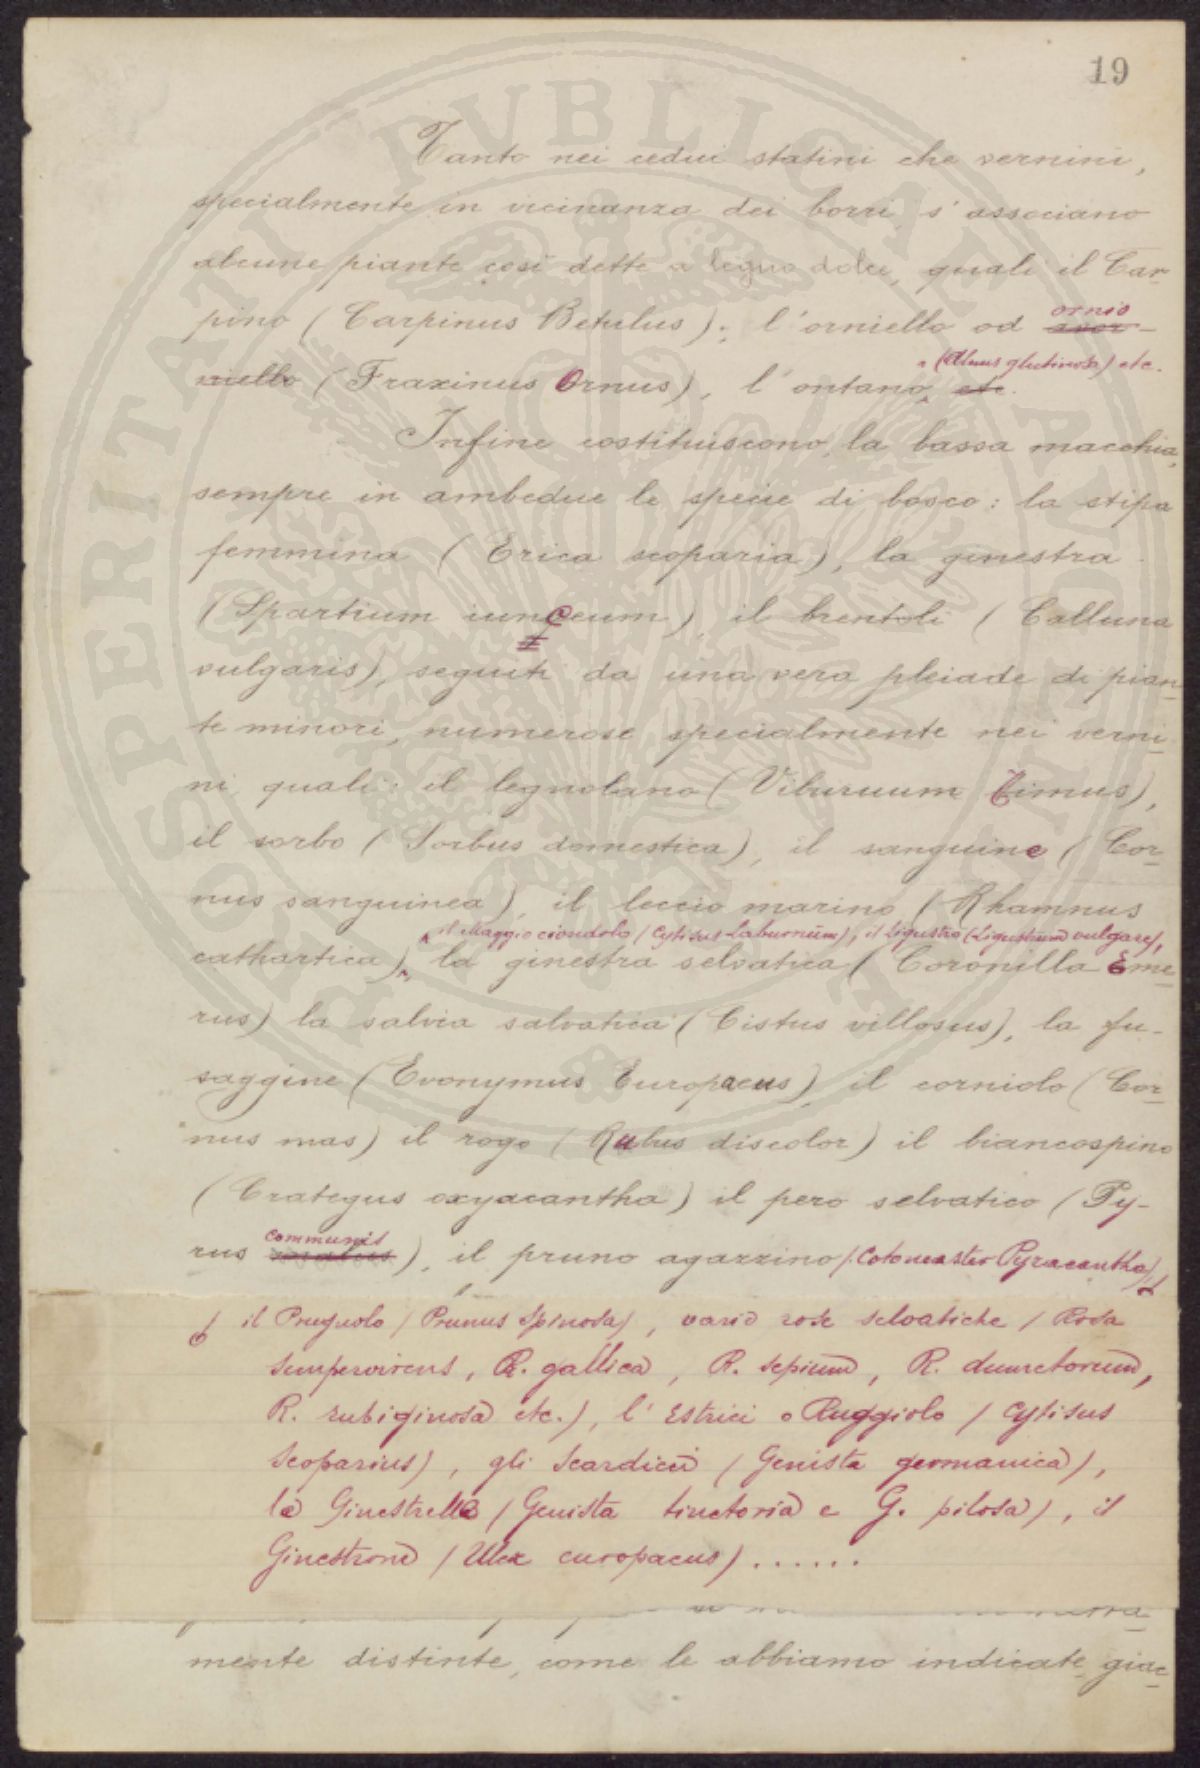 19
Tanto nei cedui statini che vernini,
specialmente in vicinanza dei borri s'associano
alcune piante così dette a legno dolce, quali il Car-
pino (Carpinus Betulus), l'orniello od ornio
niello (Fraxinus Ornus), l'ontano (Alnus glutinosa) etc. etc.
Infine costituiscono la bassa macchia,
sempre in ambedue le specie di bosco: la stipa
femmina (Erica scoparia), la ginestra
(Spartium iunceum), il brentoli (Calluna
vulgaris), seguiti da una vera pleiade di pian-
te minori, numerose specialmente nei verni-
ni, quali: il legnolano (Viburnum Timus),
il sorbo (Sorbus domestica), il sanguine (Cor-
nus sanguinea), il leccio marino (Rhamnus
il Maggio ciondolo (Cytisus Laburnum), il Ligustro (Ligustrum vulgare),
cathartica), la ginestra selvatica (Coronilla Eme-
rus) la salvia salvatica (Cistus villosus), la fu-
saggine (Evonymus Europaeus) il corniolo (Cor-
nus mas) il rogo (Rubus discolor) il biancospino
(Crategus oxyacantha) il pero selvatico (Py-
communis
rus ), il pruno agazzino (Cotoneaster Pyracantha)
il Prugnolo (Prunus Spinosa), varie rose selvatiche (Rosa
sempervirens, R. gallica, R. sepium, R. dumetorum,
R. rubiginosa etc.), l'Estrici o Ruggiolo (Cytisus
Scoparius), gli Scardicci (Genista germanica),
la Ginestrella (Genista tinctoria e G. pilosa), il
Ginestrone (Ulex europaeus) ......
mente distinte, come le abbiamo indicate giac-